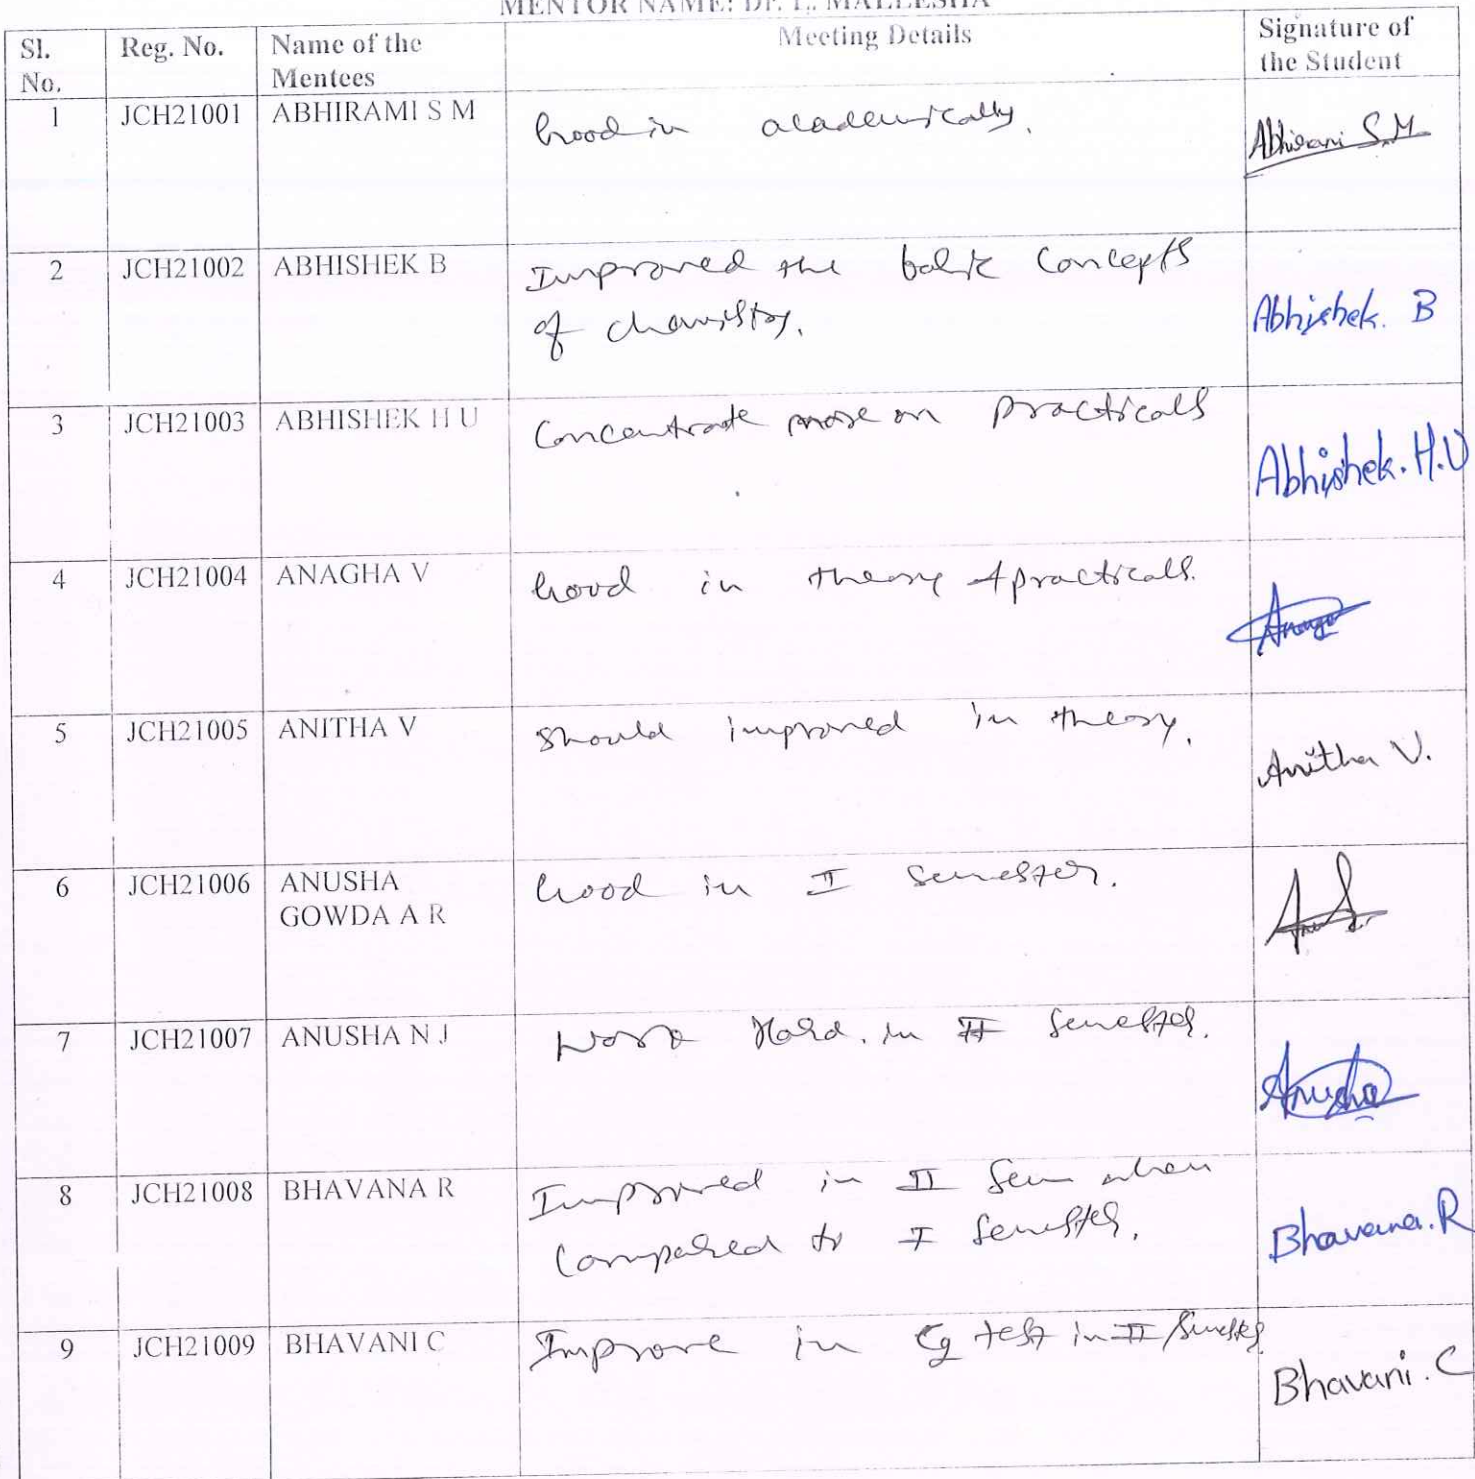 MENTOR NAME: Dr. L. MALLESHA
Sl. No. Reg. No. Name of the Mentees Meeting Details Signature of the Student
1 JCH21001 ABHIRAMI S M Good in academically. Abhirami S.M
2 JCH21002 ABHISHEK B Improved the basic Concepts
of chemistry. Abhishek. B
3 JCH21003 ABHISHEK H U Concentrate more on practicals Abhishek.H.U
4 JCH21004 ANAGHA V Good in theory & practicals.
5 JCH21005 ANITHA V Should improved in theory. Anitha V.
6 JCH21006 ANUSHA
GOWDA A R Good in I semester.
7 JCH21007 ANUSHA N J Work Hard. in II Semester. Anusha
8 JCH21008 BHAVANA R Improved in II Sem when
Compared to I Semester. Bhavana.R
9 JCH21009 BHAVANI C Improve in C2 test in II Semester Bhavani.C